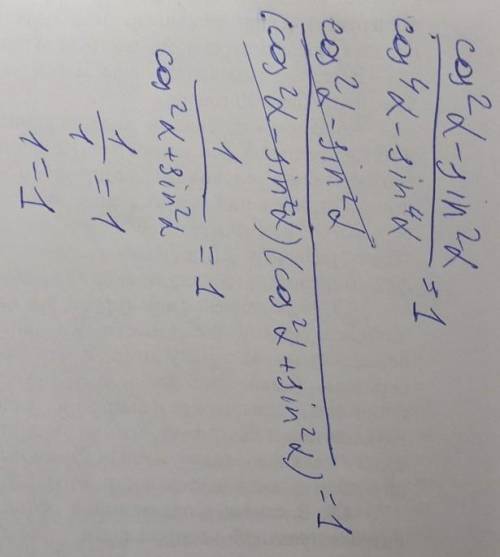 cos²α - sin²α / cos⁴α - sin⁴α = 1
cos²α - sin²α / (cos²α - sin²α)(cos²α + sin²α) = 1
1 / cos²α + sin²α = 1
1/1 = 1
1 = 1